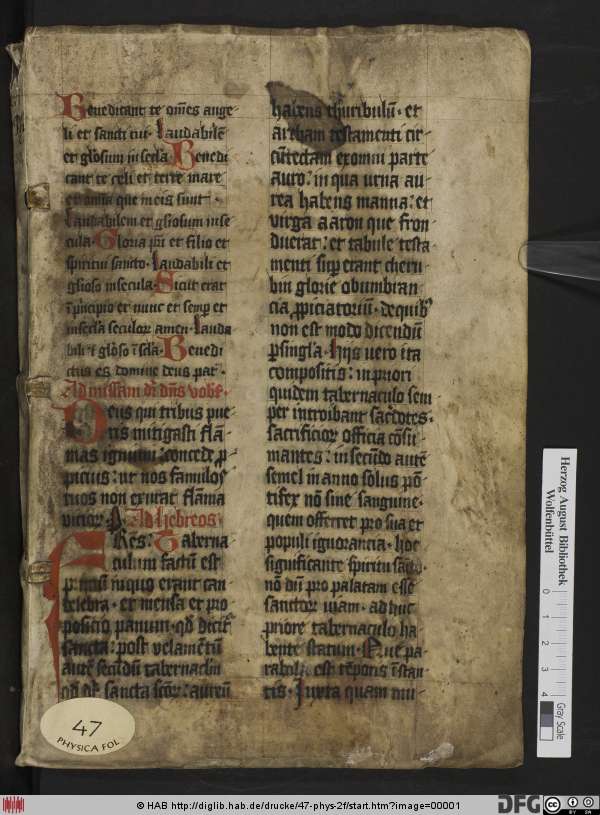 Benedicant te om̅es ange
li et sancti tui · Laudabilē
et gl̅osum in secl̅a Benedi
cant te celi et terre mare
et om̅ia que in eis sunt ·
Laudabilem et gl̅iosum in se
cula · Gloria pr̅i et filio et
spiritui sancto · Laudabili et
gl̅ioso in secula · Sicut erat
ī principio et nunc et semp̲ et
in secl̅a seculor amen · Lauda
bili et gl̅oso ī scl̅a · Benedi
ctus es domine deus pat̅ ·
Ad missam dr̅ dn̅s vobc̅ ·
Deus qui tribus pue
ris mitigasti flā
mas ignium : concede p̲
picius : ut nos famulos
tuos non exurat flāma
vicior · P · Ad Hebreos ·
Fres : Taberna
culum factū est
primū in quo erant can
delebra · et mensa et pro
posicio panum · qd̅ dicit̅
sancta : post velamētū
autē secūdū tabernaclm̅
qd̅ dr̅ sancta scor̅ : aureū
habens thuribulū · et
archam testamenti cir
cūtectam ex omni parte
auro : in qua urna au
rea habens manna : et
virga aaron que fron
duerat : et tabule testa
menti sup̲ erant cheru
bin glorie obumbran
cia p̲piciatoriū · de quib̅
non est modo dicendū
per singla · Hijs vero ita
compositis : in priori
quidem tabernaculo sem
per introibant sac̅dotes ·
sacrificior officia cōsu
mantes : in secūdo autē
semel in anno solus pō
tifex nō sine sanguine ·
quem offerret pro sua et
populi ignorancia · hoc
significante spiritu sac̅o ·
nō dū pro palatam esse
sanctor viam · ad huc
priore tabernaculo ha
bente statum · Que pa
rabola est tēporis īstan
tis · Juxta quam mu
47
PHYSICA FOL
Herzog August Bibliothek
Wolfenbüttel
0 1 2 3 4
Gray Scale
© HAB http://diglib.hab.de/drucke/47-phys-2f/start.htm?image=00001
DFG
cc BY SA